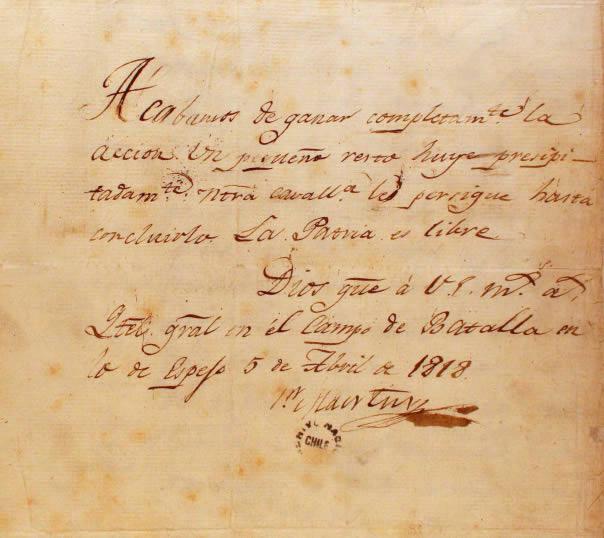 Acabamos de ganar completam.te la
accion. Un pequeño resto huye presipi-
tadam.te Ntrã cavall.a lo persigue hasta
concluirlo. La Patria es libre
Dios gũe à V.S. m.s a.s
Qtel. gral en el Campo de Batalla en
lo de Espejo 5 de Abril de 1818.
Martin
ARCHIVO NACIO
CHILE